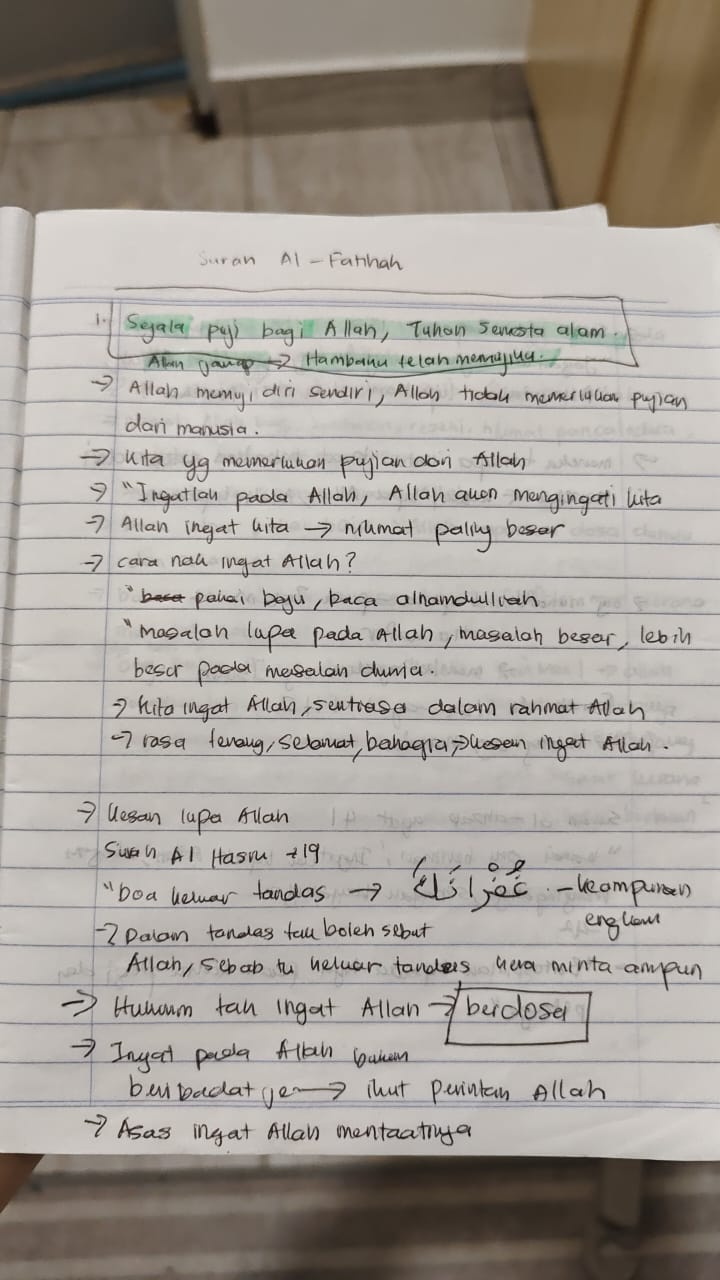 Surah Al-Fatihah
1. Segala puji bagi Allah, Tuhan semesta alam.
Allah jawap → Hambaku telah memujiku.
→ Allah memuji diri sendiri, Allah tidak memerlukan pujian
dari manusia.
→ Kita yg memerlukan pujian dari Allah
→ "Ingatlah pada Allah, Allah akan mengingati kita
→ Allah ingat kita → nikmat paling besar
→ cara nak ingat Allah?
" baca pakai baju, baca alhamdulillah
" masalah lupa pada Allah, masalah besar, lebih
besar pada masalah dunia.
→ Kita ingat Allah, sentiasa dalam rahmat Allah
→ rasa tenang, selamat, bahagia → kesan ingat Allah.
→ Kesan lupa Allah
Surah Al Hasru +19
"Doa keluar tandas → غُفْرَانَكَ. - keampunan
engkau
→ Dalam tandas tak boleh sebut
Allah, sebab tu keluar tandas kena minta ampun
→ Hukum tak ingat Allah → berdosa
→ Ingat pada Allah bukan
beribadat je → ikut perintah Allah
→ Asas ingat Allah mentaatinya